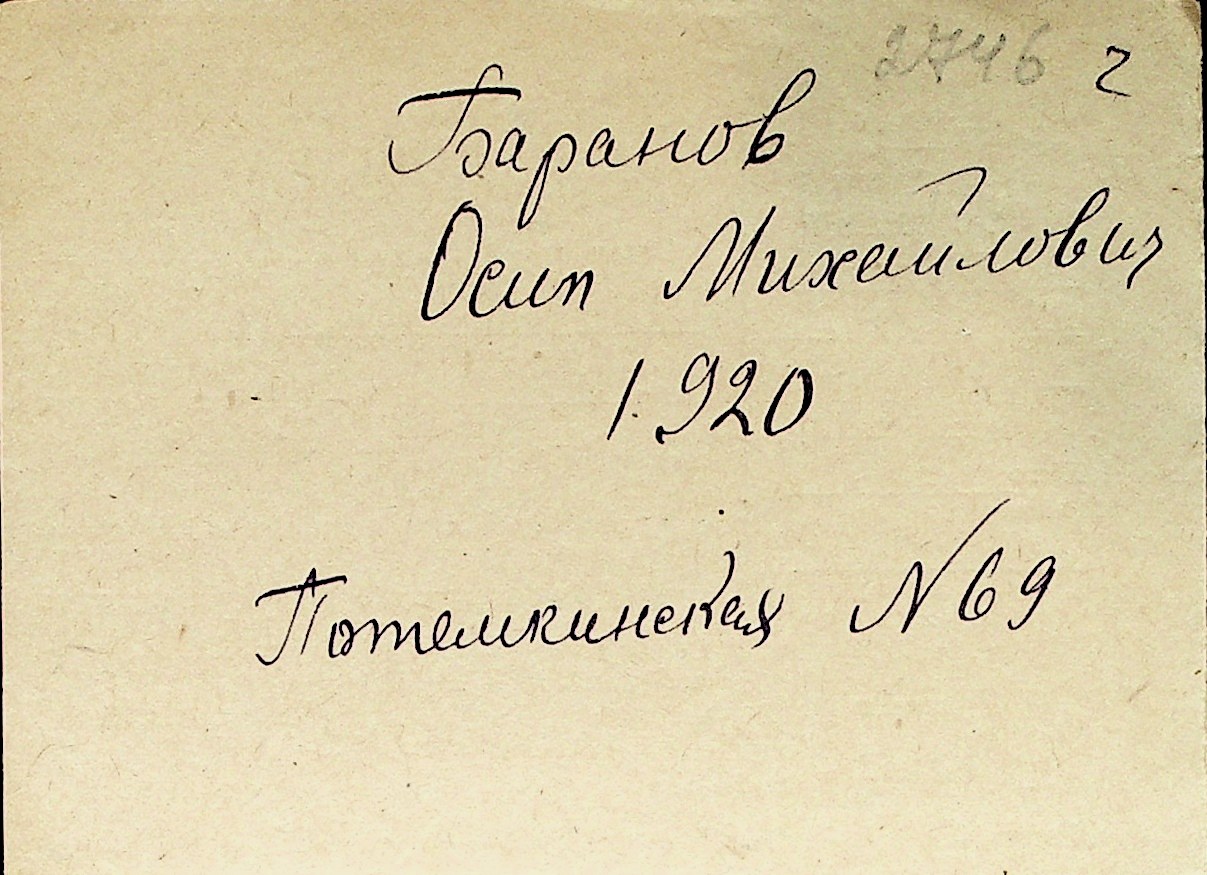 2746 г
Баранов
Осип Михайлович
1920
Потемкинская N 69